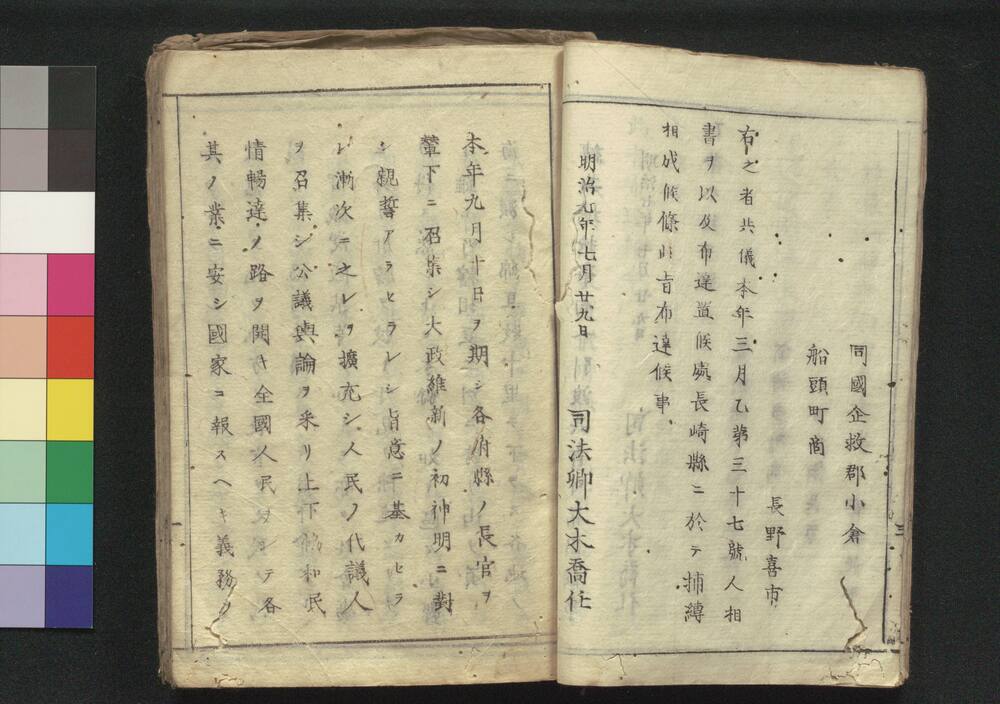 同國企救郡小倉
船頭町商
長野喜市
右之者共儀本年三月乙第三十七號人相
書ヲ以及布達置候處長崎縣ニ於テ捕縛
相成候條此旨布達候事
明治九年七月廿九日
司法卿大木喬任
本年九月十日ヲ期シ各府縣ノ長官ヲ
輦下ニ召集シ大政維新ノ初神明ニ對
シ親誓アラセラレシ旨意ニ基カセラ
レ漸次ニ之レヲ擴充シ人民ノ代議人
ヲ召集シ公議輿論ヲ采リ上下協和民
情暢達ノ路ヲ開キ全國人民ヲシテ各
其ノ業ニ安シ國家ニ報スヘキ義務ヲ